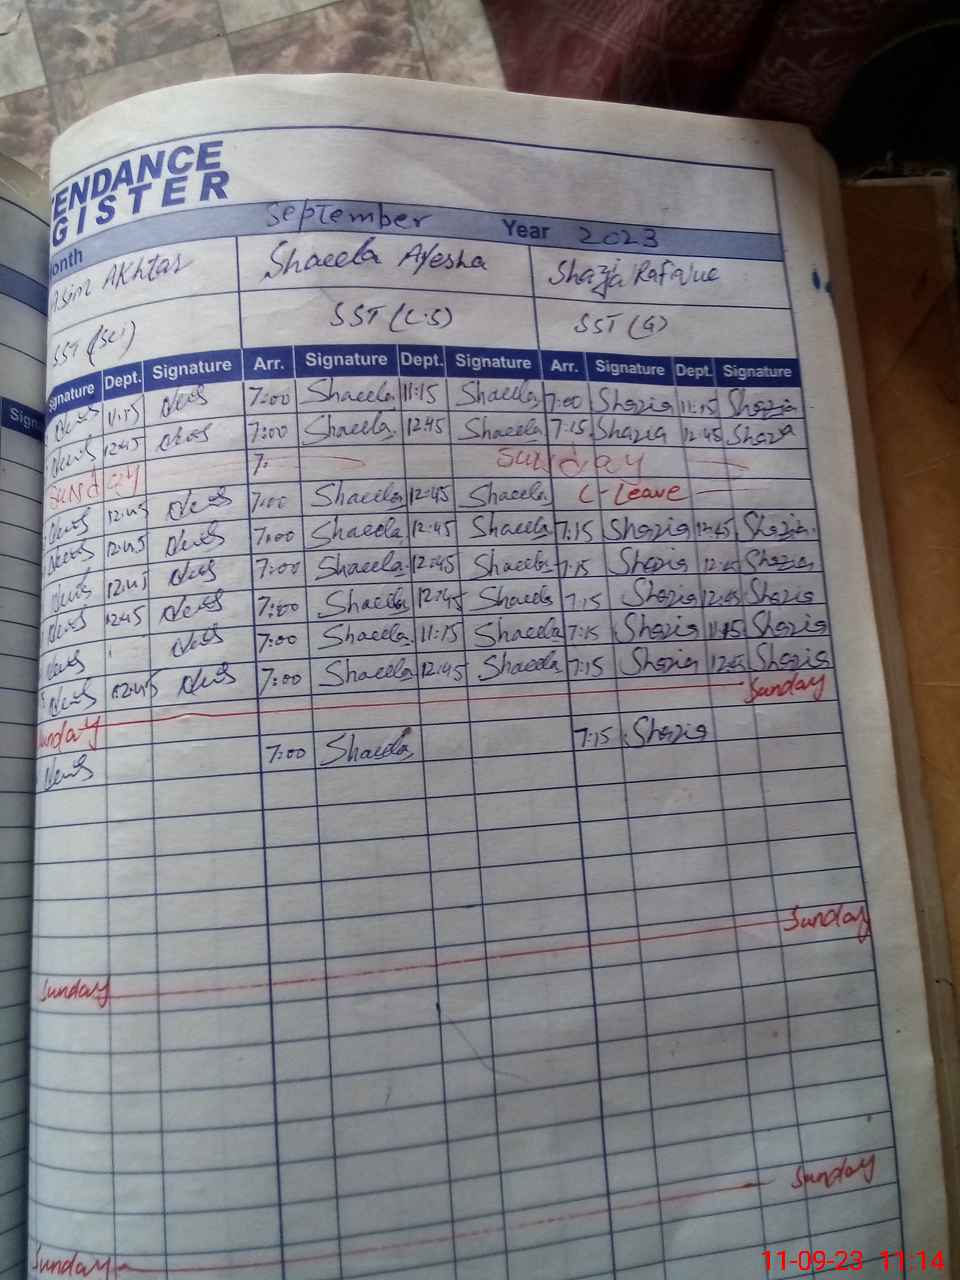 TENDANCE
GISTER
onth September Year 2023
Asim Akhtar Shaeela Ayesha Shazia Rafique
SST (Sci) SST (C.S) SST (G)
Signature Dept. Signature Arr. Signature Dept. Signature Arr. Signature Dept. Signature
11:15 7:00 Shaeela 11:15 Shaeela 7:00 Shazia 11:15 Shazia
12:45 7:00 Shaeela 12:45 Shaeela 7:15 Shazia 12:45 Shazia
Sunday 7: Sunday
12:45 7:00 Shaeela 12:45 Shaeela C-Leave
12:45 7:00 Shaeela 12:45 Shaeela 7:15 Shazia 12:45 Shazia
12:45 7:00 Shaeela 12:45 Shaeela 7:15 Shazia 12:45 Shazia
12:45 7:00 Shaeela 12:45 Shaeela 7:15 Shazia 12:45 Shazia
7:00 Shaeela 11:15 Shaeela 7:15 Shazia 11:15 Shazia
12:45 7:00 Shaeela 12:45 Shaeela 7:15 Shazia 12:45 Shazia
Sunday Sunday
7:00 Shaeela 7:15 Shazia
Sunday Sunday
Sunday Sunday
11-09-23 11:14